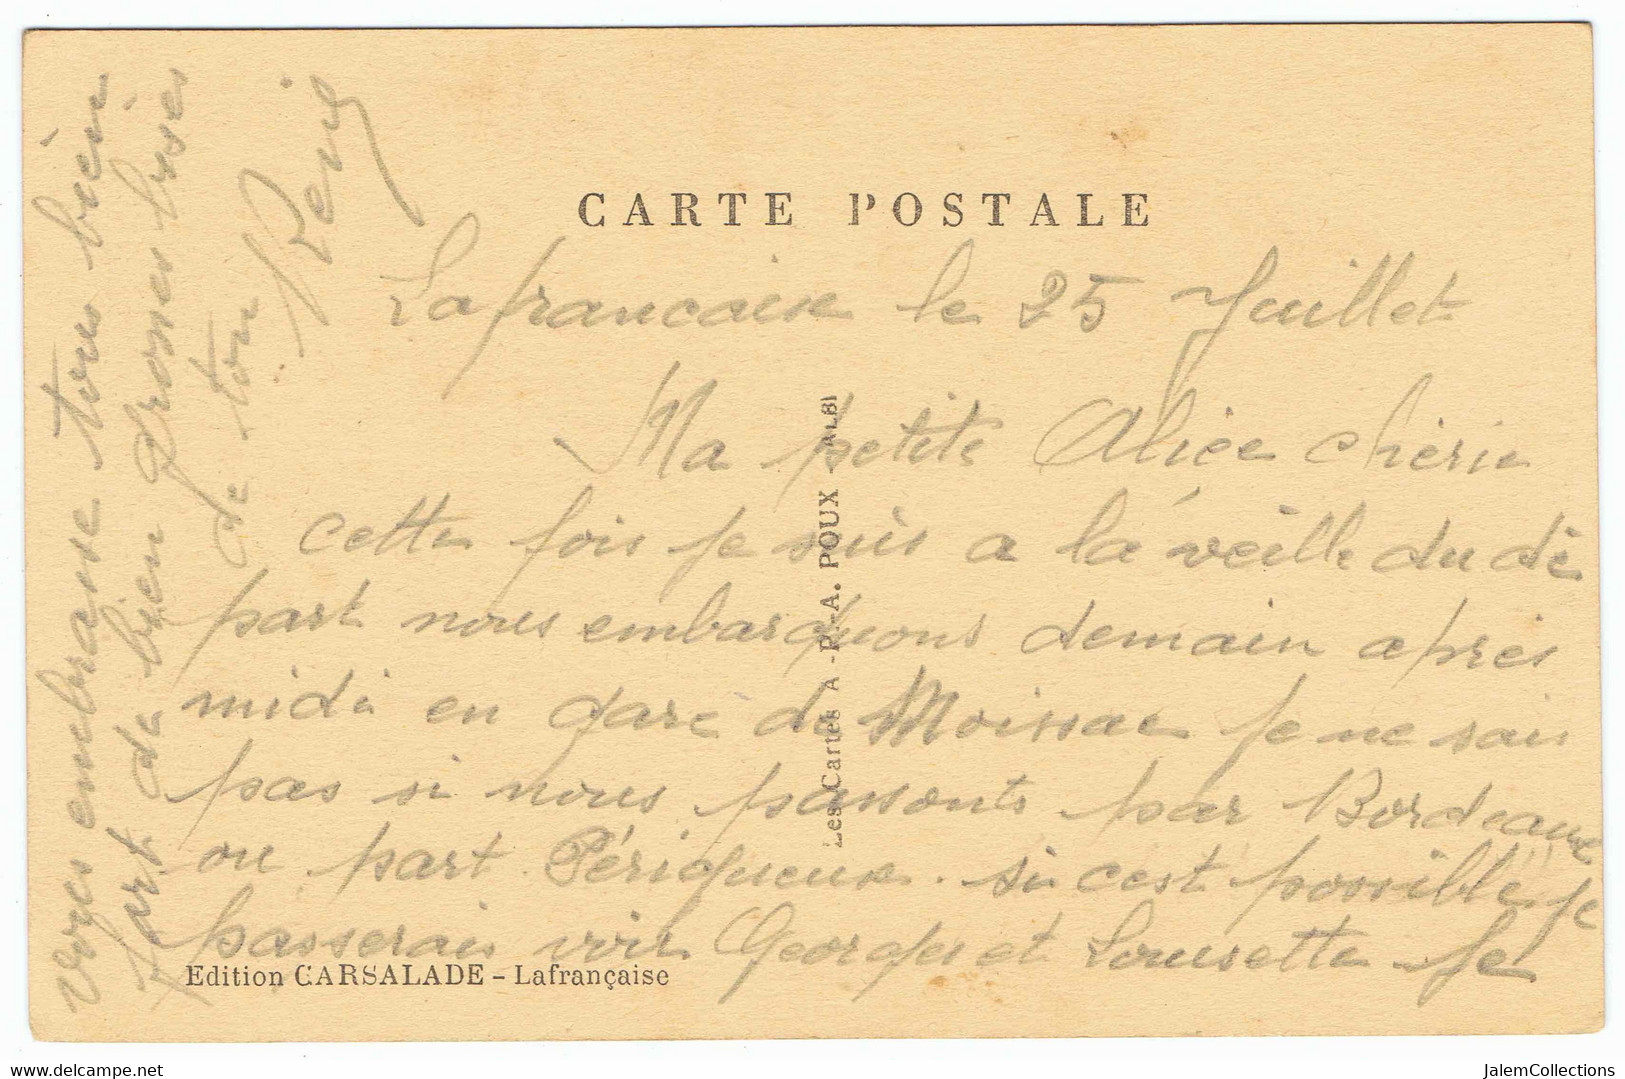 CARTE POSTALE
Lafrancaise le 25 Juillet
Ma petite Alice chérie
cette fois je suis a la veille du dé
part nous embarquons demain après
midi en gare de Moissac je ne sais
pas si nous passonts par Bordeaux
ou part Périgueux. si cest possible je
passerais voir Georges et Lousette je
vous embrasse tous bien
fort de bien grosses bises
de ton René
Les Cartes A. P.-A. POUX ALBI
Edition CARSALADE - Lafrançaise
www.delcampe.net
JalemCollections